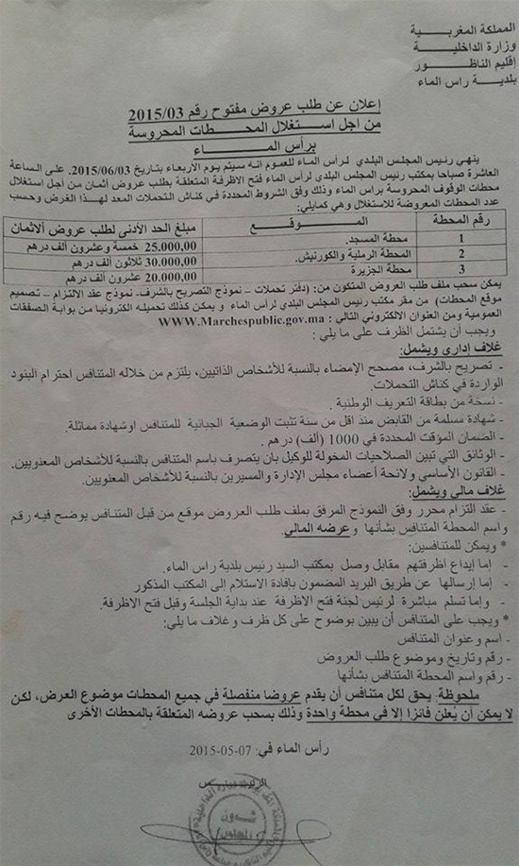 المملكة المغربية
وزارة الداخلية
إقليم الناظور
بلدية راس الماء
إعلان عن طلب عروض مفتوح رقم 2015/03
من اجل استغلال المحطات المحروسة
براس الماء
ينهي رئيس المجلس البلدي لرأس الماء للعموم انه سيتم يوم الاربعاء بتاريخ 2015/06/03. على الساعة
العاشرة صباحا بمكتب رئيس المجلس البلدي لرأس الماء فتح الاظرفة المتعلقة بطلب عروض أثمان من أجل استغلال
محطات الوقوف المحروسة براس الماء وذلك وفق الشروط المحددة في كناش التحملات المعد لهذا الغرض وحسب
عدد المحطات المعروضة للاستغلال وهي كمايلي:
رقم المحطة الموقع مبلغ الحد الأدنى لطلب عروض ألاثمان
1 محطة المسجد. 25.000,00 خمسة وعشرون ألف درهم
2 المحطة الرملية والكورنيش. 30.000,00 ثلاثون ألف درهم
3 محطة الجزيرة 20.000,00 عشرون ألف درهم
يمكن سحب ملف طلب العروض المتكون من: (دفتر تحملات – نموذج التصريح بالشرف. نموذج عقد الالتزام – تصميم
موقع المحطات) من مقر مكتب رئيس المجلس البلدي لرأس الماء و يمكن كذلك تحميله الكترونيا من بوابة الصفقات
العمومية ومن العنوان الالكتروني التالي : WWW.Marchespublic.gov.ma
ويجب أن يشتمل الظرف على ما يلي :
غلاف إداري ويشمل:
- تصريح بالشرف، مصحح الإمضاء بالنسبة للأشخاص الذاتيين، يلتزم من خلاله المتنافس احترام البنود
الواردة في كناش التحملات.
- نسخة من بطاقة التعريف الوطنية .
- شهادة مسلمة من القابض منذ اقل من سنة تثبت الوضعية الجبائية للمتنافس اوشهادة مماثلة.
- الضمان المؤقت المحددة في 1000 (ألف) درهم .
- الوثائق التي تبين الصلاحيات المخولة للوكيل بان يتصرف باسم المتنافس بالنسبة للأشخاص المعنويين.
- القانون الأساسي ولائحة أعضاء مجلس الإدارة والمسيرين بالنسبة للأشخاص المعنويين.
غلاف مالي ويشمل:
- عقد التزام محرر وفق النموذج المرفق بملف طلب العروض موقع من قبل المتنافس يوضح فيه رقم
واسم المحطة المتنافس بشأنها وعرضه المالي.
* ويمكن للمتنافسين:
- إما إيداع اظرفتهم مقابل وصل بمكتب السيد رئيس بلدية راس الماء.
- إما إرسالها عن طريق البريد المضمون بإفادة الاستلام إلى المكتب المذكور
- وإما تسلم مباشرة لرئيس لجنة فتح الاظرفة عند بداية الجلسة وقبل فتح الاظرفة.
* ويجب على المتنافس أن يبين بوضوح على كل ظرف وغلاف ما يلي:
- اسم وعنوان المتنافس
- رقم وتاريخ وموضوع طلب العروض
- رقم واسم المحطة المتنافس بشأنها
ملحوظة: يحق لكل متنافس أن يقدم عروضا منفصلة في جميع المحطات موضوع العرض، لكن
لا يمكن أن يُعلن فائزا إلا في محطة واحدة وذلك بسحب عروضه المتعلقة بالمحطات الأخرى
رأس الماء في: 07-05-2015
الرئيس